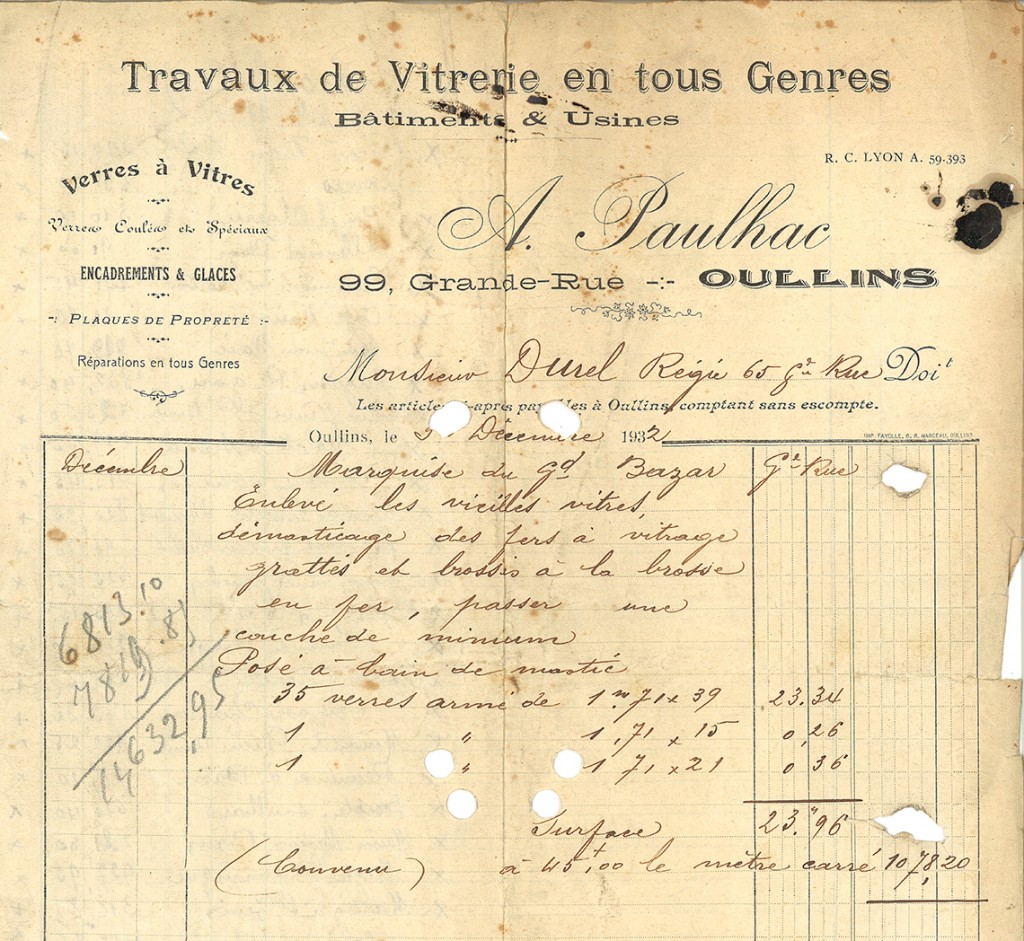 Travaux de Vitrerie en tous Genres
Bâtiments & Usines
R. C. LYON A. 59-393
Verres à Vitres
Verres Coulés et Spéciaux
ENCADREMENTS & GLACES
PLAQUES DE PROPRETÉ
Réparations en tous Genres
A. Paulhac
99, Grande-Rue -:- OULLINS
Monsieur Durel Régie 65 Gde Rue Doit
Les articles ci-après payables à Oullins, comptant sans escompte.
Oullins, le Décembre 1932
IMP. FAYOLLE, 6, R. MARCEAU, OULLINS
Décembre Marquise du Gd Bazar Gde Rue
Enlevé les vieilles vitres,
démasticage des fers à vitrage
grattés et brossés à la brosse
en fer, passer une
couche de minium
Posé à bain de mastic
35 verres armé de 1m71 x 39 23.34
1 " 1,71 x 15 0,26
1 " 1 71 x 21 0 36
Surface 23.96
(Convenu) à 45,00 le mètre carré 1078,20
6813.10
7819.85
14632,95